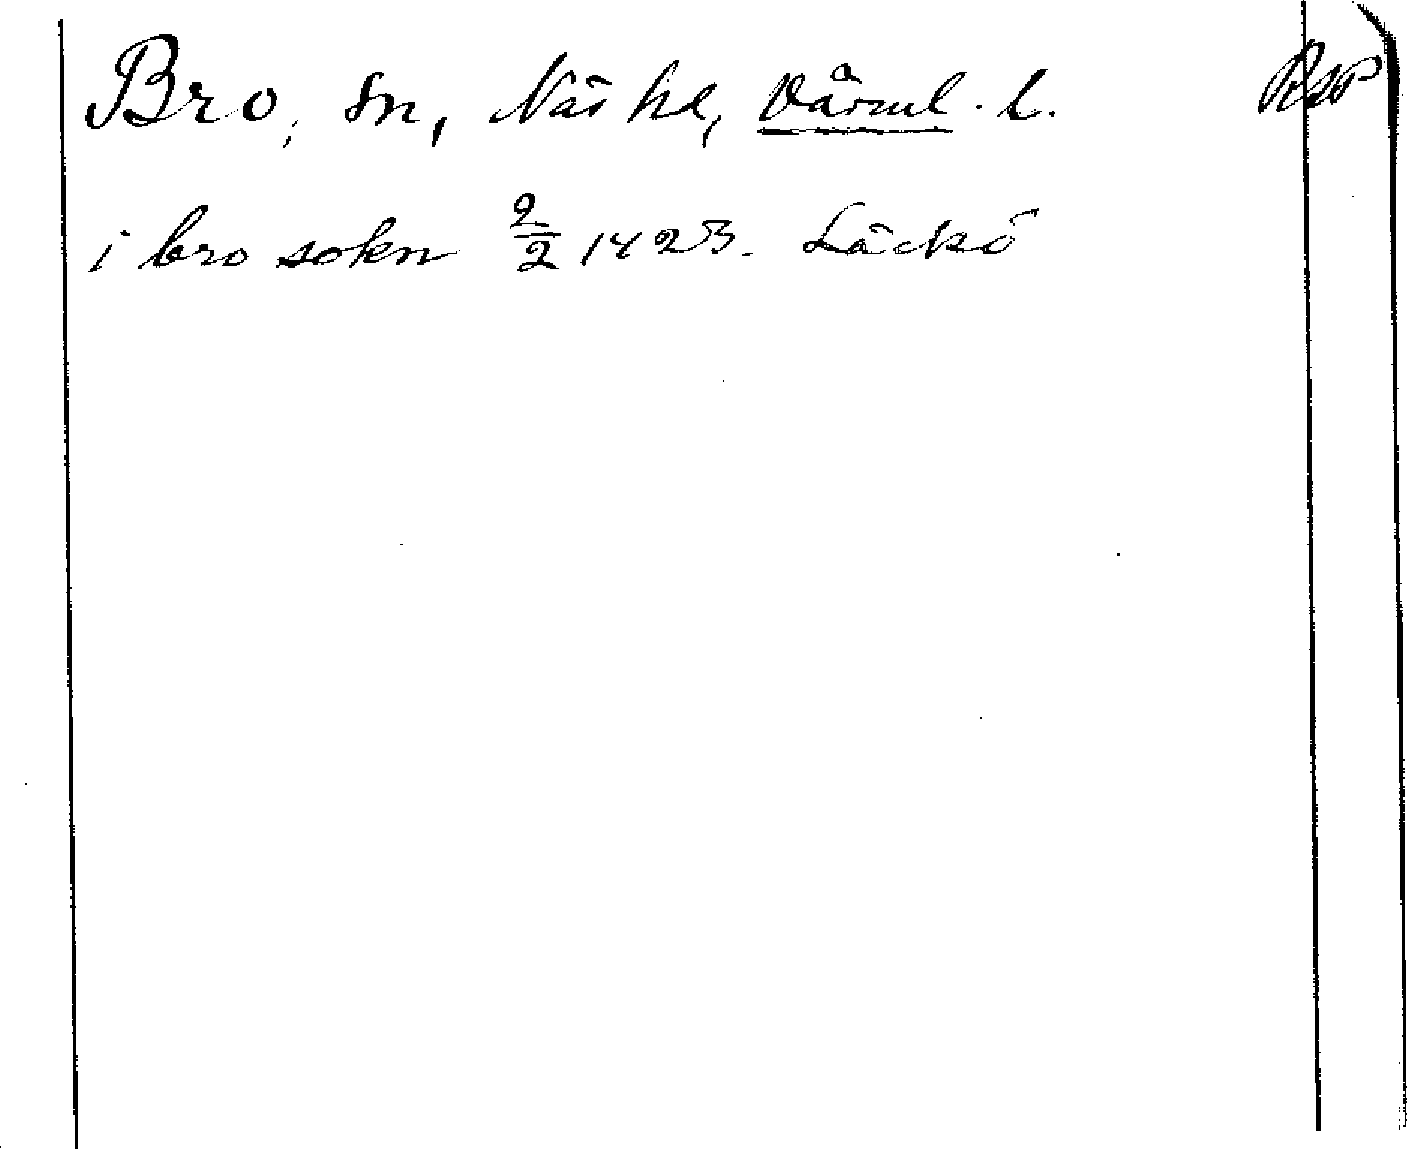 Bro, Sn, Näs hd, Värml. l. RAP
i bro sokn 2/2 1423. Läckö